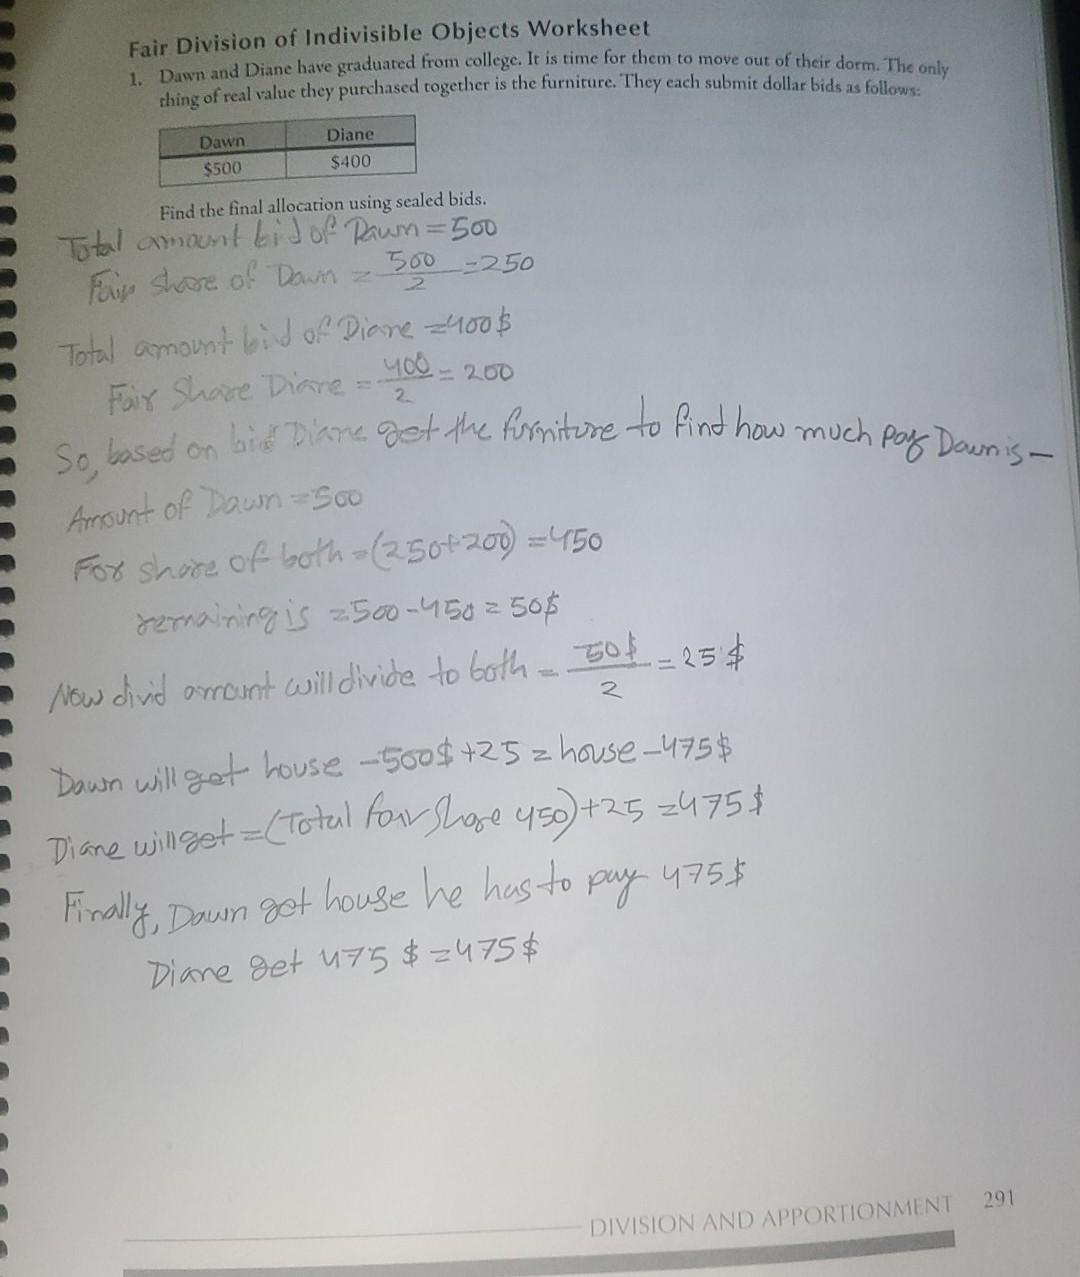 Fair Division of Indivisible Objects Worksheet
1. Dawn and Diane have graduated from college. It is time for them to move out of their dorm. The only
thing of real value they purchased together is the furniture. They each submit dollar bids as follows:
Dawn Diane
$500 $400
Find the final allocation using sealed bids.
Total amount bid of Dawn = 500
Fair share of Dawn = 500/2 = 250
Total amount bid of Diane = 400$
Fair Share Diane = 400/2 = 200
So, based on bid Diane get the furniture to find how much pay Dawn is -
Amount of Dawn = 500
For share of both = (250+200) = 450
remaining is = 500-450 = 50$
Now divid amount will divide to both = 50$/2 = 25$
Dawn will get house -500$ +25 = house -475$
Diane will get = (Total fair share 450)+25 = 475$
Finally, Dawn get house he has to pay 475$
Diane get 475 $ = 475$
DIVISION AND APPORTIONMENT 291